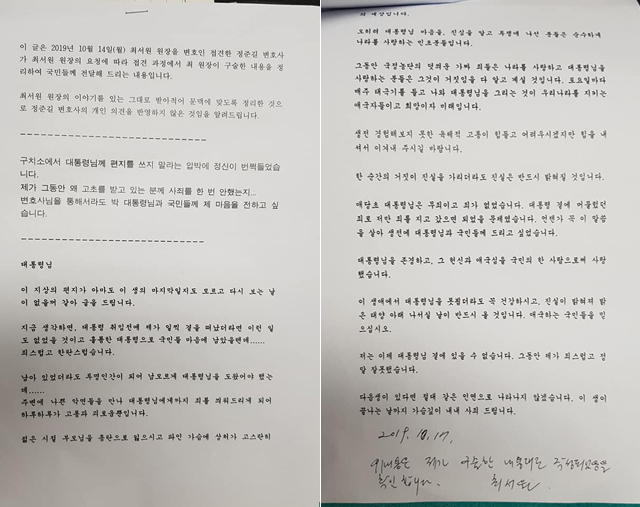 이 글은 2019년 10월 14일(월) 최서원 원장을 변호인 접견한 정준길 변호사
가 최서원 원장의 요청에 따라 접견 과정에서 최 원장이 구술한 내용을 정
리하여 국민들께 전달해 드리는 내용입니다.
최서원 원장의 이야기를 있는 그대로 받아적어 문맥에 맞도록 정리한 것으
로 정준길 변호사의 개인 의견을 반영하지 않은 것임을 알려드립니다.
----------------------------
구치소에서 대통령님께 편지를 쓰지 말라는 압박에 정신이 번쩍들었습
니다.
제가 그동안 왜 고초를 받고 있는 분께 사죄를 한 번 안했는지...
변호사님을 통해서라도 박 대통령님과 국민들께 제 마음을 전하고 싶
습니다.
----------------------------
대통령님
이 지상의 편지가 아마도 이 생의 마지막일지도 모르고 다시 보는 날
이 없을꺼 같아 글을 드립니다.
지금 생각하면, 대통령 취임전에 제가 일찍 곁을 떠났더라면 이런 일
도 없었을 것이고 훌륭한 대통령으로 국민들 마음에 남았을텐데......
죄스럽고 한탄스럽습니다.
남아 있었더라도 투명인간이 되어 남모르게 대통령님을 도왔어야 했는
데......
주변에 나쁜 악연들을 만나 대통령님에게까지 죄를 씌워드리게 되어
하루하루가 고통과 괴로움뿐입니다.
젊은 시절 부모님을 흉탄으로 잃으시고 파인 가슴에 상처가 고스란히
의 세상입니다.
오히려 대통령님 마음을, 진실을 알고 투쟁에 나선 분들은 순수하게
나라를 사랑하는 민초분들입니다.
그동안 국정농단의 덧씌운 가짜 죄들은 나라를 사랑하고 대통령님을
사랑하는 분들은 그것이 거짓임을 다 알고 계실 것입니다. 토요일마다
매주 태극기를 들고 나와 대통령님을 그리는 것이 우리나라를 지키는
애국자들이고 희망이자 미래입니다.
생전 경험해보지 못한 육체적 고통이 힘들고 어려우시겠지만 힘을 내
셔서 이겨내 주시길 바랍니다.
한 순간의 거짓이 진실을 가리더라도 진실은 반드시 밝혀질 것입니다.
애당초 대통령은 무죄이고 죄가 없었습니다. 대통령 곁에 머물렀던
죄로 저만 죄를 지고 갔으면 되었을 문제였습니다. 언젠가 꼭 이 말씀
을 살아 생전에 대통령님과 국민들께 드리고 싶었습니다.
대통령님을 존경하고, 그 헌신과 애국심을 국민의 한 사람으로써 사랑
했습니다.
이 생애에서 대통령님을 못뵙더라도 꼭 건강하시고, 진실이 밝혀져 밝
은 태양 아래 나서실 날이 반드시 올 것입니다. 애국하는 국민들을 믿
으십시오.
저는 이제 대통령님 곁에 있을 수 없습니다. 그동안 제가 죄스럽고 정
말 잘못했습니다.
다음생이 있다면 절대 같은 인연으로 나타나지 않겠습니다. 이 생이
끝나는 날까지 가슴깊이 내내 사죄 드립니다.
2019. 10. 17.
위 내용은 제가 구술한 내용대로 작성되었음을
확인합니다. 최서원